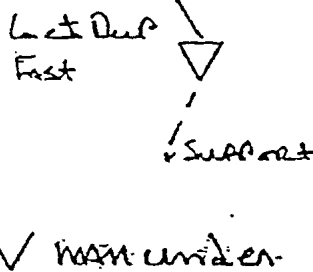 Last Deep
East
Support
man under